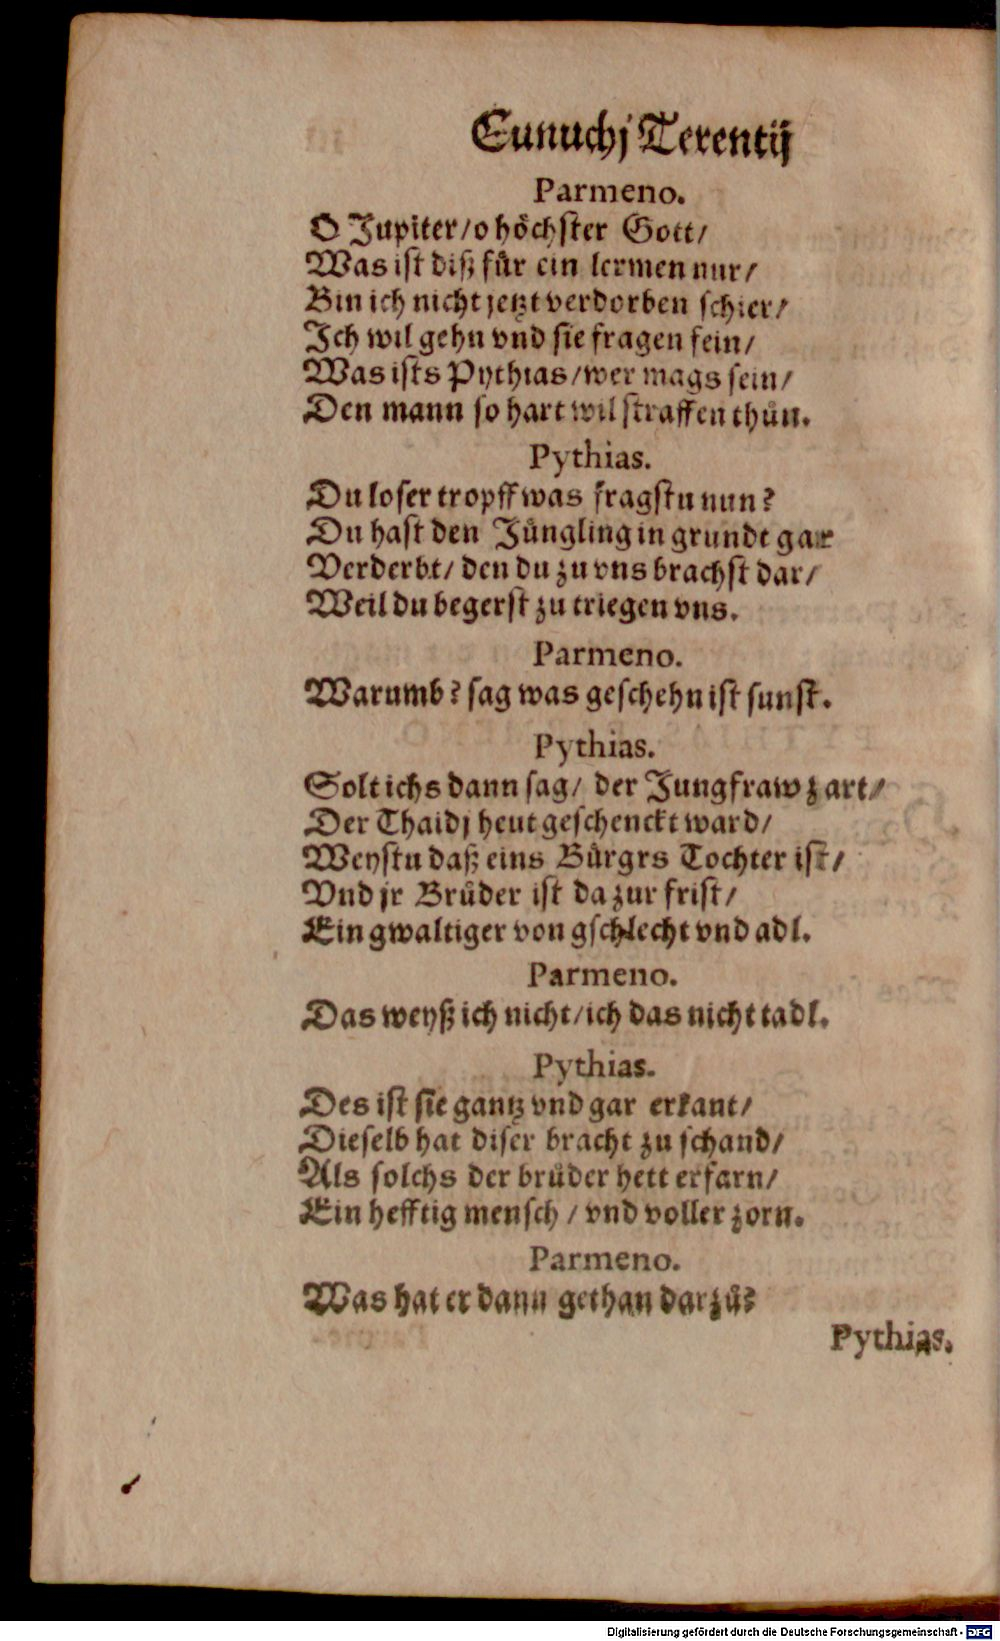 Eunuchj Terentij
Parmeno.
O Jupiter/o höchster Gott/
Was ist diß für ein lermen nur/
Bin ich nicht jetzt verdorben schier/
Ich wil gehn vnd sie fragen fein/
Was ists Pythias/wer mags sein/
Den mann so hart wil straffen thůn.
Pythias.
Du loser tropff was fragstu nun?
Du hast den Jüngling in grundt gar
Verderbt/ den du zu vns brachst dar/
Weil du begerst zu triegen vns.
Parmeno.
Warumb? sag was geschehn ist sunst.
Pythias.
Solt ichs dann sag/ der Jungfraw zart/
Der Thaidj heut geschenckt ward/
Weystu daß eins Bürgrs Tochter ist/
Vnd jr Brůder ist da zur frist/
Ein gwaltiger von gschlecht vnd adl.
Parmeno.
Das weyß ich nicht/ich das nicht tadl.
Pythias.
Des ist sie gantz vnd gar erkant/
Dieselb hat diser bracht zu schand/
Als solchs der brůder hett erfarn/
Ein hefftig mensch / vnd voller zorn.
Parmeno.
Was hat er dann gethan darzů?
Pythias.
Digitalisierung gefördert durch die Deutsche Forschungsgemeinschaft - DFG